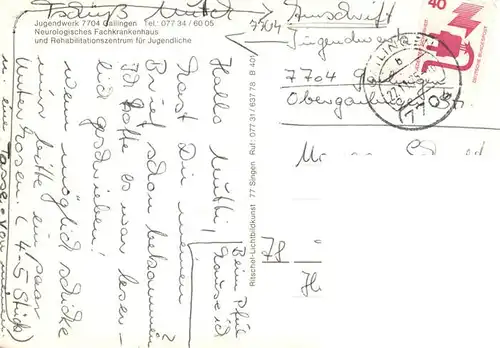 Tschüß
Jugendwerk 7704 Gailingen Tel.: 077 34 / 60 05
Neurologisches Fachkrankenhaus
und Rehabilitationszentrum für Jugendliche
Hallo Mutti,
Hast Du meinen
Brief schon bekommen?
Ich hoffe es war leser-
lich geschrieben!
wenn möglich schicke
mir bitte ein paar
Unterhosen. (4-5 Stück)
u. eine Tasse. Von meinen
Beim Pfui
Ritschel-Lichtbildkunst 77 Singen Ruf: 077 31 / 637 78 B 401
Anschrift
7704
Jugendwerk
7704 Gailingen
Obergailingen
40
DEUTSCHE BUNDESPOST
b
78